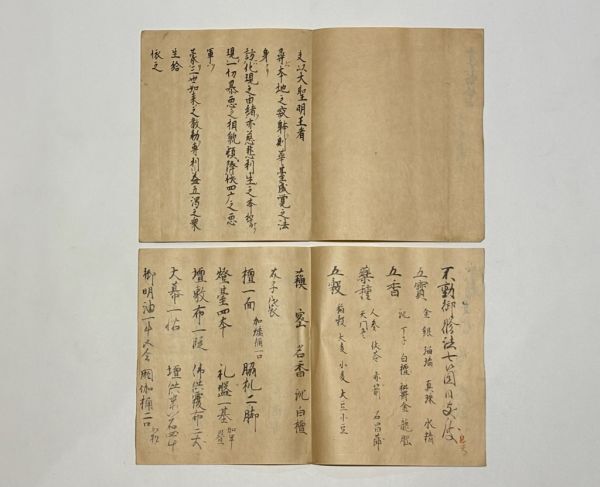 夫以大聖明王者
尋本地之寂躰則華臺成覚之法
身
訪化現之由緒亦慈悲利生之本
現一切暴悪之相貌頓降伏四广之悪
軍
蒙三世如来之教勅専利益五濁之衆
生給
依之
不動御修法七ケ日支度
五寳 金 銀 瑠璃 真珠 水精
五香 沈 丁子 白檀 欝金 龍脳
藥種 人参 伏苓 赤箭 石菖蒲
天門冬
五穀 稲穀 大麦 小麦 大豆 小豆
蘓 蜜 名香 沈 白檀
芥子
壇一面 加燈桶一口 脇机二脚
燈臺四本 礼盤一基 加半畳
壇敷布一段 佛供覆布二丈
大幕一帖 壇供米 石四斗
御明油一斗 閼伽桶二口